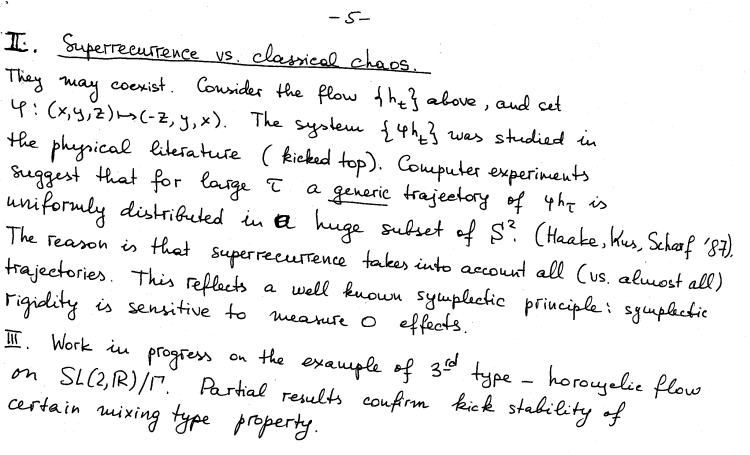 -5-
II. Superrecurrence vs. classical chaos.
They may coexist. Consider the flow {h_t} above, and set
φ: (x,y,z)↦(-z,y,x). The system {φh_t} was studied in
the physical literature (kicked top). Computer experiments
suggest that for large τ a generic trajectory of φh_τ is
uniformly distributed in a huge subset of S². (Haake, Kus, Scharf '87).
The reason is that superrecurrence takes into account all (vs. almost all)
trajectories. This reflects a well known symplectic principle: symplectic
rigidity is sensitive to measure 0 effects.
III. Work in progress on the example of 3rd type – horocyclic flow
on SL(2,ℝ)/Γ. Partial results confirm kick stability of
certain mixing type property.